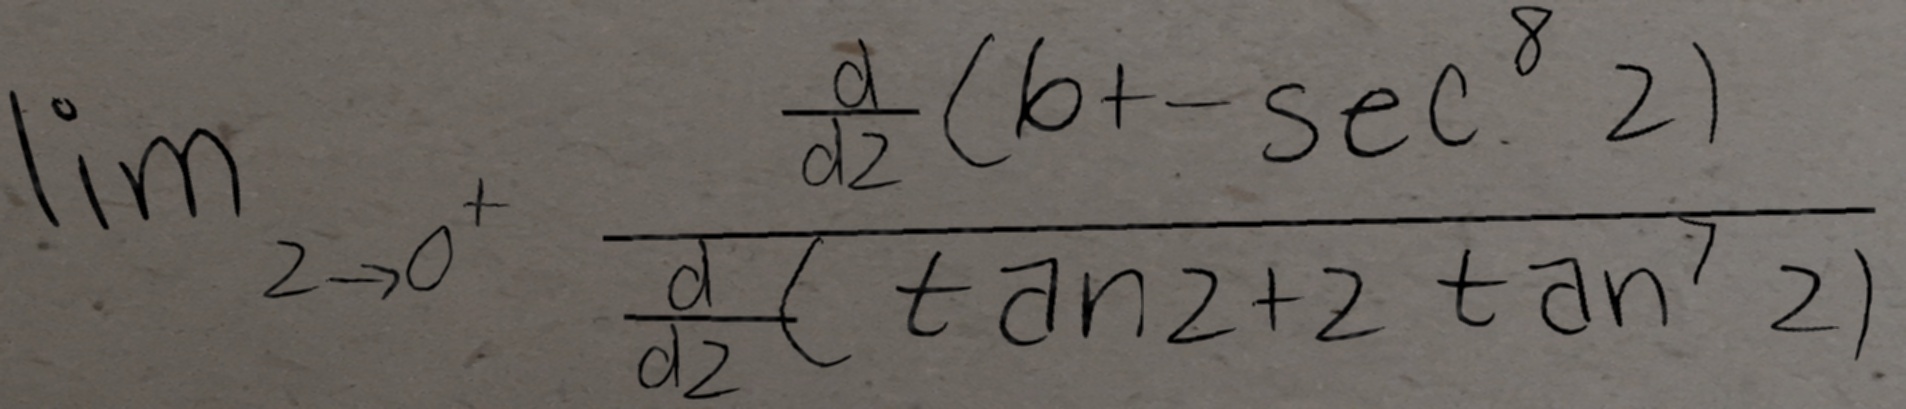 \lim_{z \to 0^+} \frac{\frac{d}{dz}(6+-\sec^8 z)}{\frac{d}{dz}(\tan z+2\tan^7 z)}